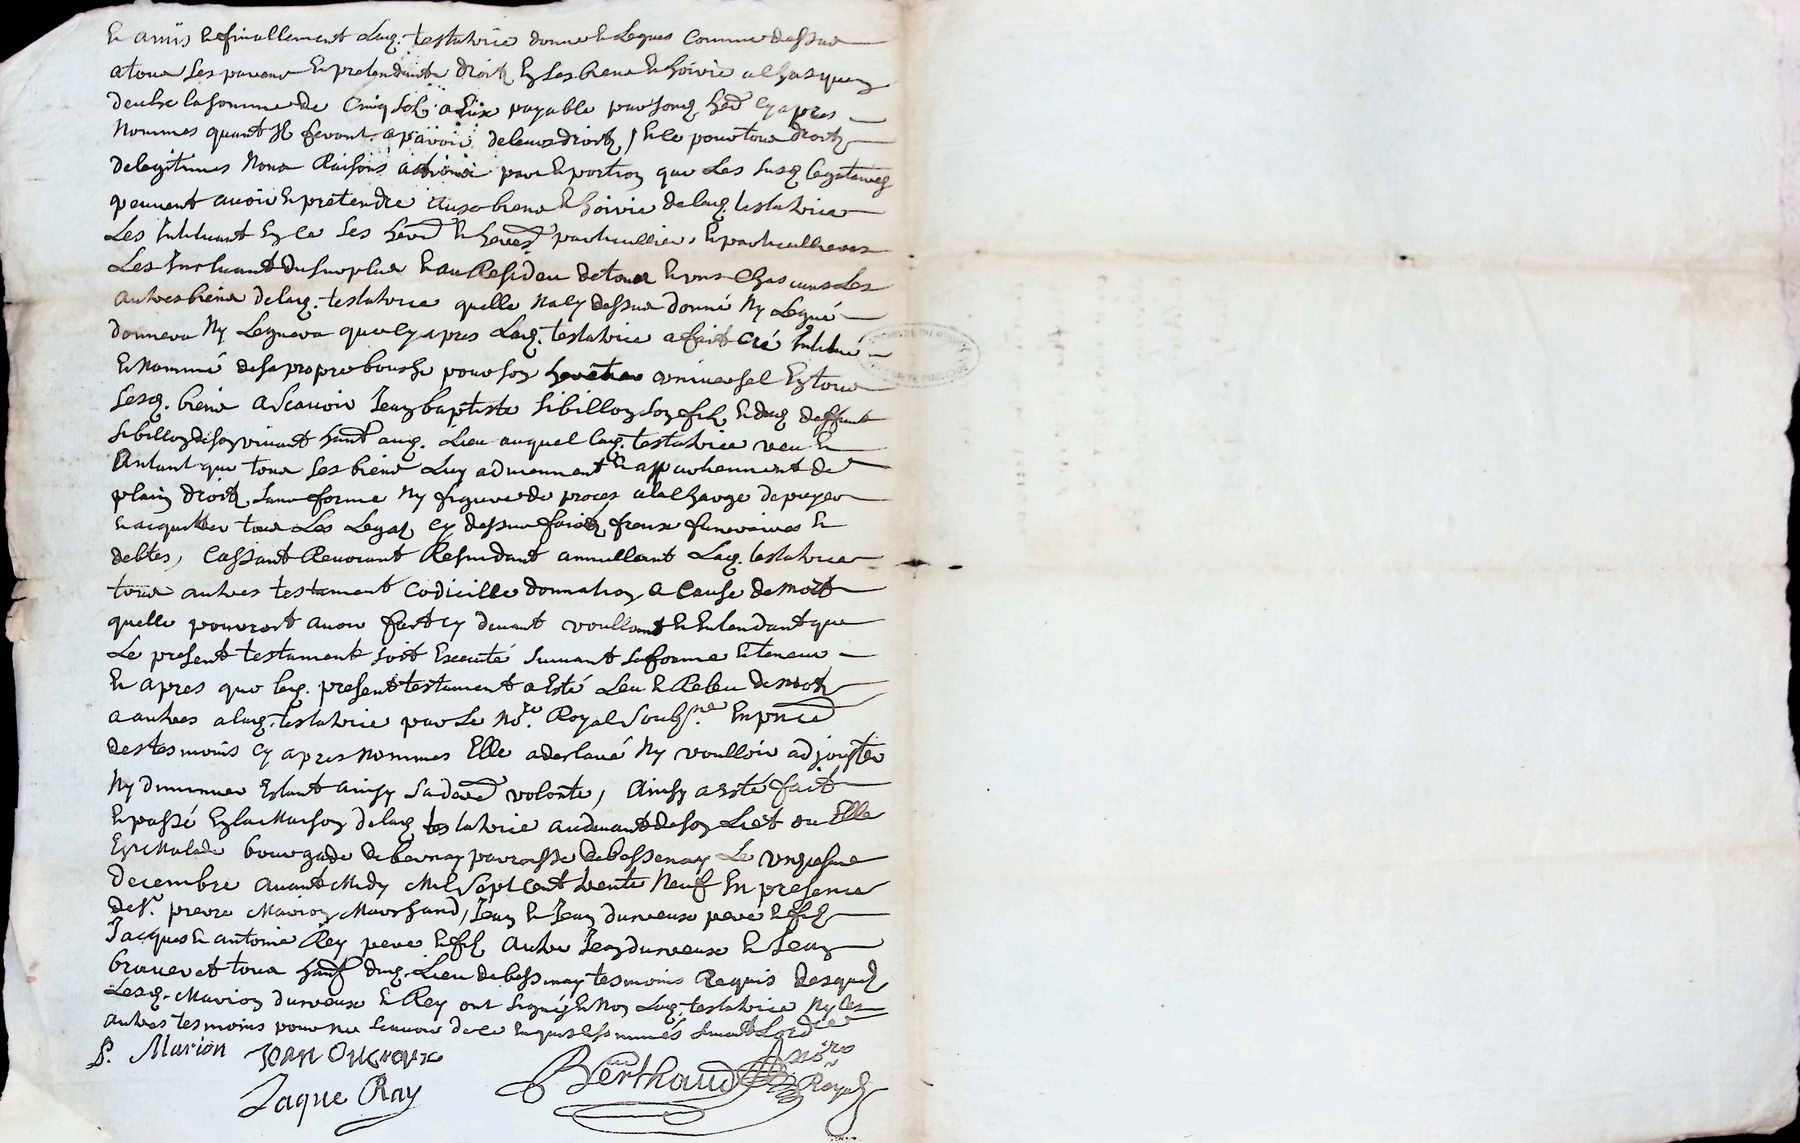 Et amis Et finallement Laq. testatrice donne Et Legues Comme dessus
a tous Ses parens Et pretendants droit En Ses biens Et hoirie a chasquun
deulx la somme de Cinq Sols a Eux payable par Sond. her. Cy apres
Nommes quant Il feront apavoir de leurs droits, Et ce pour tous droits
de legitimes Noms Raisons actions part Et portion que Les Susd. legataires
peuvent avoir Et pretendre aux biens Et hoirie de laq. testatrice
Les Instituant En ce Ses her. Et heres particulliers, Et particullieres
Les Incluant du surplus Et au Resideu de tous Et uns Chascuns Les
autres biens de laq. testatrice quelle Na Cy dessus donné Ny Legué
donnera Ny Leguera que Cy apres Laq. testatrice a fait Cré Institué
Et Nommé de sa propre bouche pour Son heretier universel En tous
Sesd. biens ascavoir Jean baptiste Sibillon Son fils Et dud. deffunt
Sibillon de Son vivant hant aud. Lieu auquel laq. testatrice veu Et
Antant que tous Ses biens Luy adviennent Et appartiennent de
plain droit, Sans forme Ny figure de proces a la charge de payer
Et acquitter tous Les Legats Cy dessus faicts freux funeraires Et
debtes, Cassant Revocant Resindant annullant Laq. testatrice
tous autres testament Codicille donnation a Cause de mort
quelle pourroit avoir fait Cy devant voullant Et Entendant que
Le present testament Soit Executé Suivant Sa forme Et teneur
Et apres que led. present testament a Esté Leu Et Releu de mot
a autres a laq. testatrice par Le Nore. Royal Soubsne. En pnce
des tesmoins Cy apres nommes Elle a desclaré Ny voulloir adjouster
Ny diminuer Estant ainsy Sa dere volonte, Ainsy a esté fait
Et passé En la Maison de laq. testatrice au devant de Son Liet ou Elle
Est Malade bourgade de bernay parroisse de bessenay Le unziesme
Decembre avant Midy Mil Sept Cent trente Neuf En presence
de Sr. pierre Marion Marchand, Jean Et Jean durveux pere Et fils
Jacques Et antoine Rey pere Et fils autre Jean durveux Et Jean
brouveret tous hant dud. Lieu de bessenay tesmoins Requis desquels
Lesd. Marion durveux Et Rey ont Signé Et Non Laq. testatrice Ny les
autres tesmoins pour ne Scavoir de ce Enquis Et sommés Suivant Lordce
P. Marion Jean Durveux
Jaque Ray
Berthaud nore Royal